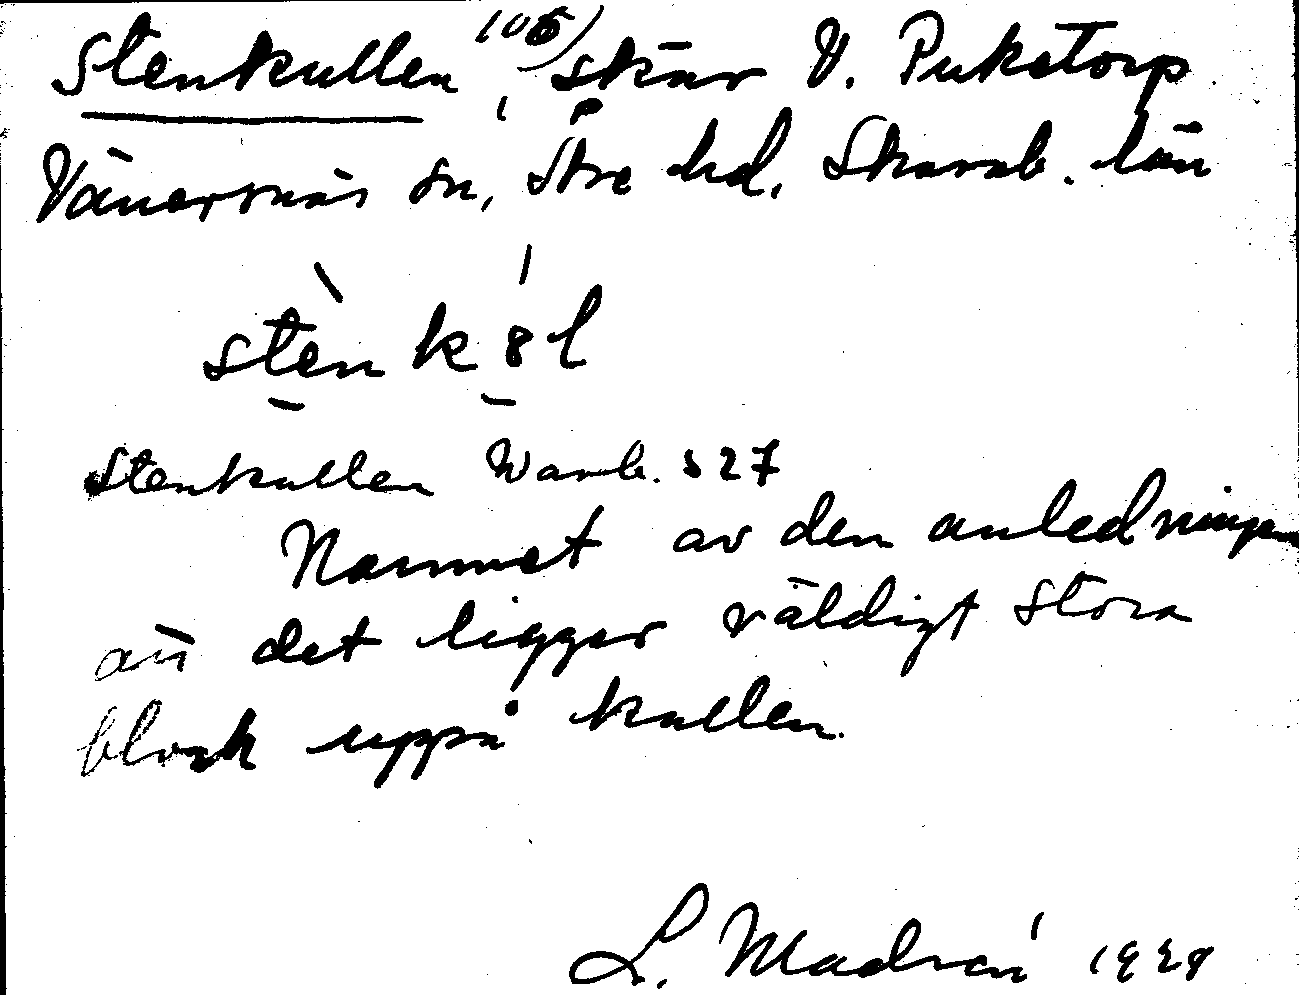 Stenkullen 106) , skär V. Puketorp
Vänersnäs sn, Åse hd, Skarab. län
stenkol
Stenkullen Warb. s 27
Namnet av den anledningen
att det ligger väldigt stora
block uppå kullen.
L. Modrén